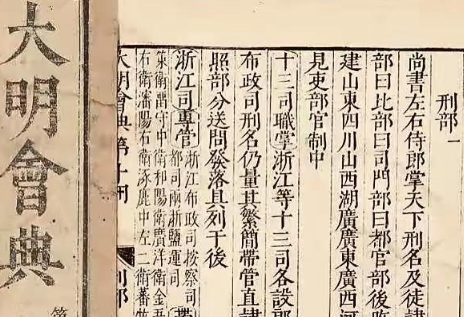 刑部一
尚書左右侍郎掌天下刑名及徒隸
部曰比部曰司門部曰都官部後改
建山東四川山西湖廣廣東廣西河
見吏部官制中
十三司職掌浙江等十三司各設郎
布政司刑名仍量其繁簡帶管直隸
照部分送問發落具列于後
浙江司專管
浙江布政司按察司
都司兩浙鹽運司
衛留守中衛和陽衛廣洋衛金吾
右衛瀋陽右衛涿鹿中左二衛蕃牧
大明會典第
刑部
大明會典
第